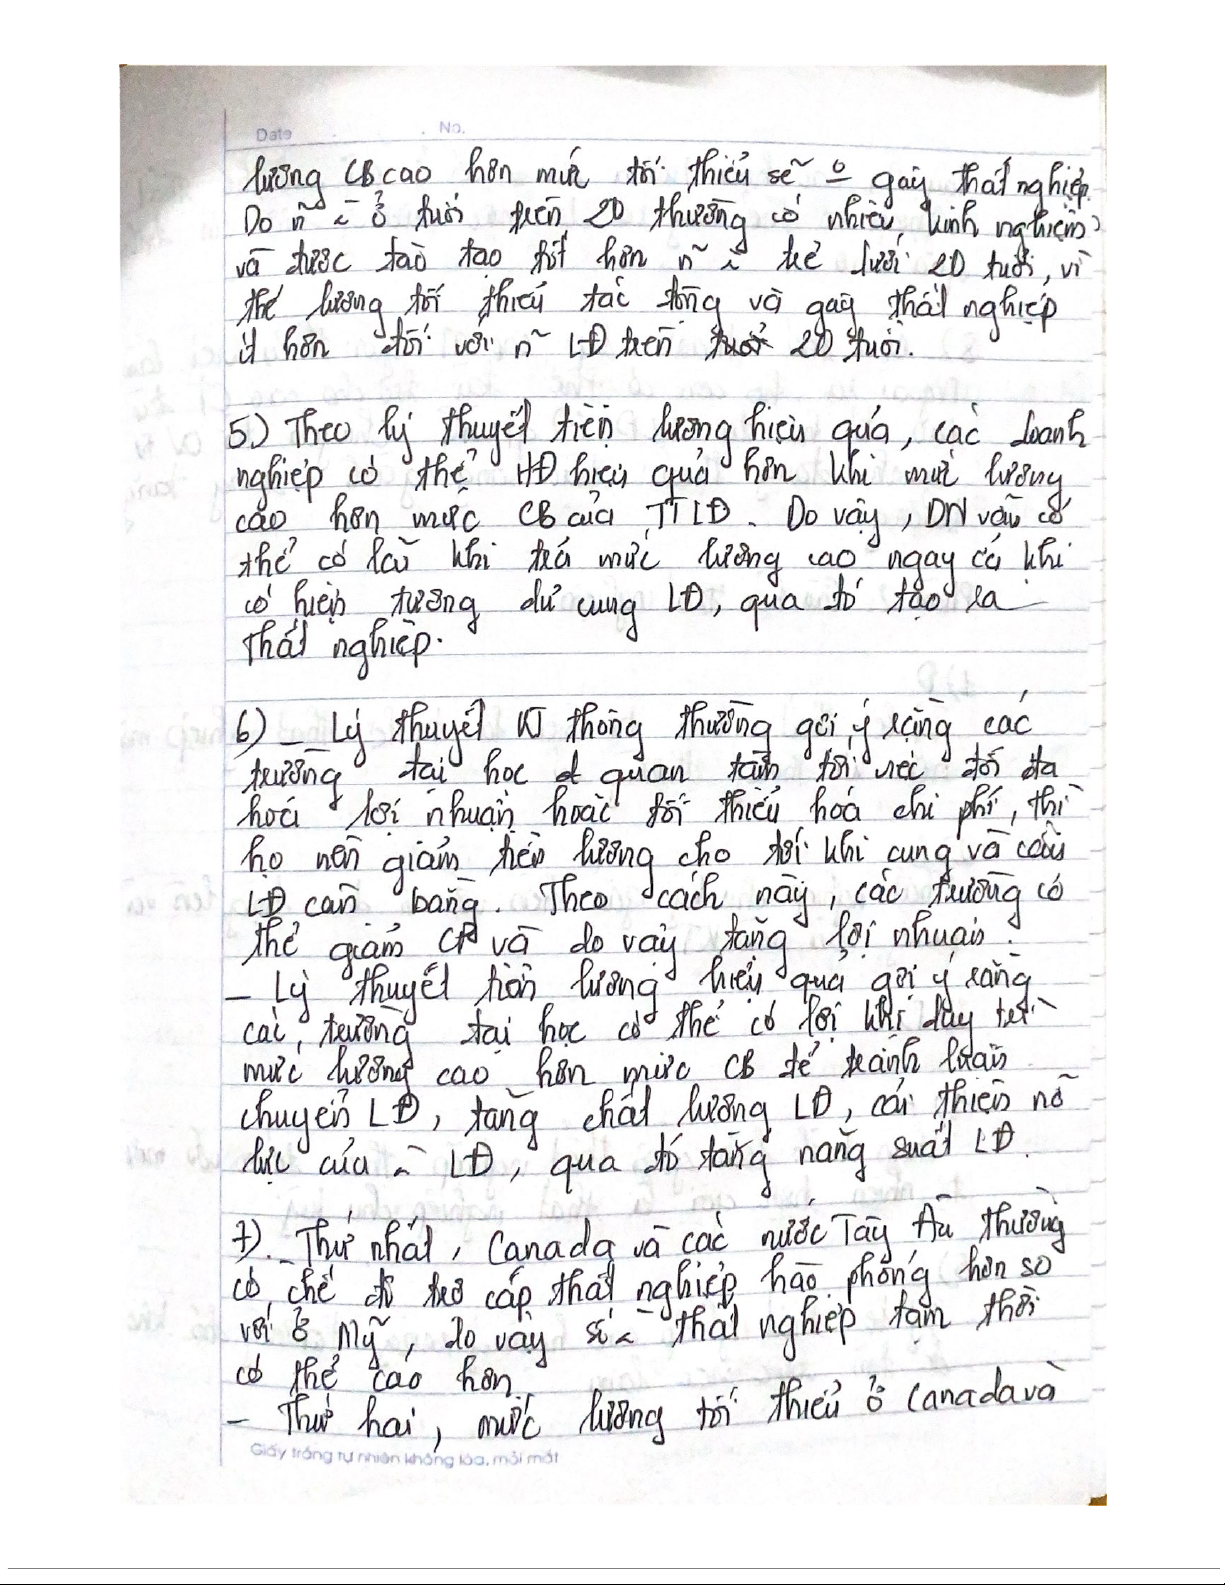 Date No.
lương CB cao hơn mức tối thiểu sẽ o gây thất nghiệp.
Do ñ ~ ở tuổi trên 20 thường có nhiều kinh nghiệm
và được đào tạo tốt hơn ñ ~ trẻ dưới 20 tuổi, vì
thế lương tối thiểu tác động và gây thất nghiệp
ít hơn đối với ñ LĐ trên 20 tuổi.
5.) Theo lý thuyết tiền lương hiệu quả, các doanh
nghiệp có thể HĐ hiệu quả hơn khi mức lương
cao hơn mức CB của TTLĐ. Do vậy, DN vẫn có
thể có lãi khi trả mức lương cao ngay cả khi
có hiện tượng dư cung LĐ, qua đó tạo ra
thất nghiệp.
6) _ Lý thuyết KT thông thường gợi ý rằng các
trường đại học quan tâm tới việc tối đa
hoá lợi nhuận hoặc tối thiểu hoá chi phí, thì
họ nên giảm tiền lương cho tới khi cung và cầu
LĐ cân bằng. Theo cách này, các trường có
thể giảm CP và do vậy tăng lợi nhuận.
_ Lý thuyết tiền lương hiệu quả gợi ý rằng
các trường đại học có thể có lợi khi duy trì
mức lương cao hơn mức CB để tránh luân
chuyển LĐ, tăng chất lượng LĐ, cải thiện nỗ
lực của ~ LĐ, qua đó tăng năng suất LĐ.
7). _ Thứ nhất, Canada và các nước Tây Âu thường
có chế độ trợ cấp thất nghiệp hào phóng hơn so
với ở Mỹ, do vậy số ~ thất nghiệp tạm thời
có thể cao hơn.
_ Thứ hai, mức lương tối thiểu ở Canada và
Giấy trắng tự nhiên không lóa, mỏi mắt